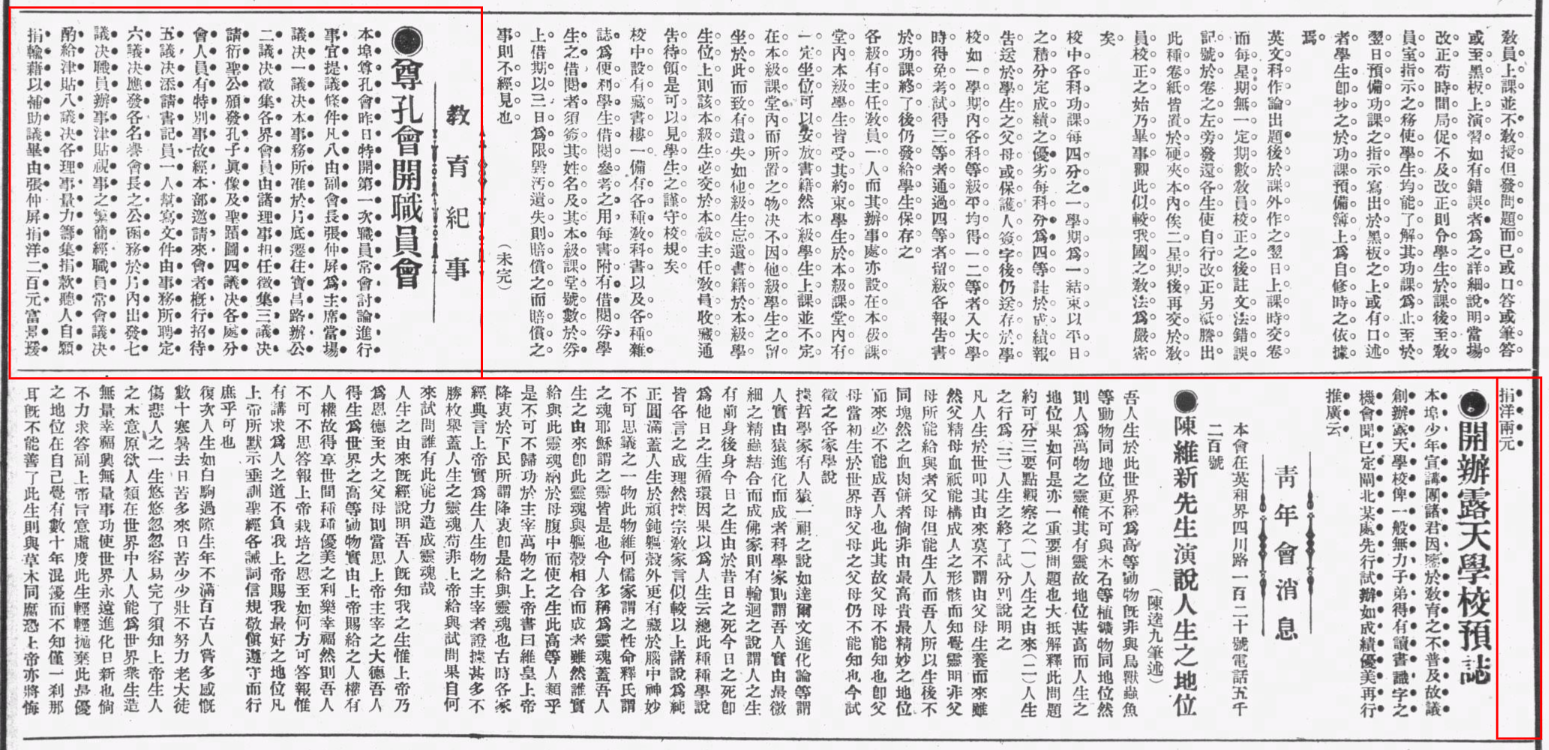 敎員上課並不敎授但發問題而已或口答或筆答
或至黑板上演習如有錯誤者爲之詳細說明當塲
改正苟時間局促不及改正則令學生於課後至敎
員室指示之務使學生均能了解其功課爲止至於
翌日預備功課之指示寫出於黑板之上或有口述
者學生卽抄之於功課預備簿上爲自修時之依據
焉
英文科作論出題後於課外作之翌日上課時交卷
而每星期無一定期數敎員校正之後註文法錯誤
記號於卷之左旁發還各生使自行改正另紙謄出
此種卷紙皆置於硬夾本內俟二星期後再交於敎
員校正之始乃畢事觀此似較我國之敎法爲嚴密
矣
校中各科功課每四分之一學期爲一結束以平日
之積分定成績之優劣每科分爲四等註於成績報
告送於學生之父母或保護人簽字後仍送存於學
校如一學期內各科等級平均得一二等者入大學
時得免考試得三等者通過四等者留級各報告書
於功課終了後仍發給學生保存之
各級有主任敎員一人而其辦事處亦設在本級課
堂內本級學生皆受其約束學生於本級課堂內有
一定坐位可以安放書籍然本級學生上課並不定
在本級課堂內而所置之物决不因他級學生之曾
坐於此而致有遺失如他級生忘遺書籍於本級學
生位上則該本級生必交於本級主任敎員收藏通
告待領是可以見學生之謹守校規矣
校中設有藏書樓一備有各種敎科書以及各種雜
誌爲便利學生借閱參考之用每書附有借閱券學
生之借閱者須簽其姓名及其本級課堂號數於券
上借期以三日爲限毀汚遺失則賠償之而賠償之
事則不經見也
(未完)
教育紀事
●尊孔會開職員會
本埠尊孔會昨日特開第一次職員常會討論進行
事宜提議條件凡八由副會長張仲屏爲主席當塲
議决一議决本事務所准於片底遷在寶昌路辦公
二議决徵集各界會員由諸理事担任徵集三議决
請衍聖公頒發孔子眞像及聖蹟圖四議决各處分
會人員有特別事故經本部邀請來會者槪行招待
五議决添請書記員一人幫寫文件由事務所聘定
六議决應發各名譽會長之公函務於月內出發七
議决職員辦事津貼視事之繁簡經職員常會議决
酌給津貼八議决各理事量力籌集捐欵聽人自願
捐輸藉以補助議畢由張仲屏捐洋二百元富景
捐洋兩元
●開辦露天學校預誌
本埠少年宣講團諸君因慨於敎育之不普及故議
創辦露天學校俾一般無力子弟得有讀書識字之
機會聞已定閘北某處先行試辦如成績優美再行
推廣云
靑年會消息
本會在英租界四川路一百二十號電話五千
二百號
●陳維新先生演說人生之地位
(陳逵九筆述)
吾人生於此世界稱爲高等動物旣非與鳥獸蟲魚
等動物同地位更不可與木石等植礦物同地位然
則人爲萬物之靈惟其有靈故地位甚高而人生之
地位果如何是亦一重要問題也大抵解釋此問題
約可分三要點觀察之(一)人生之由來(二)人生
之行爲(三)人生之終了試分別說明之
凡人生於世叩其由來莫不謂由父母生養而來雖
然父精母血祇能構成人之形骸而知覺靈明非父
母所能給與者父母但能生人而吾人所以生後不
同塊然之血肉倂者倘非由最高貴最精妙之地位
而來必不能成吾人也此其故父母不能知也卽父
母當初生於世界時父母之父母仍不能知也今試
徵之各家學說
按哲學家有人猿一祖之說如達爾文進化論等謂
人實由猿進化而成者科學家則謂吾人實由最微
細之精蟲結合而成佛家則有輪迴之說謂人之生
有前身後身今日之生由於昔日之死今日之死卽
爲他日之生循環因果以爲人生云總此種種學說
皆各言之成理然按宗敎家言似較以上諸說爲純
正圓滿蓋人生於頑鈍軀殼外更有藏於腦中神妙
不可思議之一物此物維何儒家謂之性命釋氏謂
之魂耶穌謂之靈皆是也今人多稱爲靈魂蓋吾人
生之由來卽此靈魂與軀殼相合而成者雖然誰實
給與此靈魂納於母腹之中而使之生此高等人類乎
是不可不歸功於主宰萬物之上帝書曰維皇上帝
降衷於下民所謂降衷卽是給與靈魂也古時各家
經典言上帝實爲生人生物之主宰者證據甚多不
勝枚舉蓋人生之靈魂苟非上帝給與試問果自何
來試問誰有此能力造成靈魂哉
人生之由來旣經說明吾人旣知我之生惟上帝乃
爲恩德至大之父母則當思上帝主宰之大德吾人
得生爲世界之高等動物實由上帝賜給之人權有
人權故得享世間種種優美之利樂幸福然則吾人
不可不思答報上帝栽培之恩至如何方可答報惟
有講求爲人之道不負我上帝賜我最好之地位凡
上帝所默示垂訓聖經各誡詞信規敬愼遵守而行
庶乎可也
復次人生如白駒過隙生年不滿百古人嘗多感慨
數十寒暑去日苦多來日苦少少壯不努力老大徒
傷悲人之一生悠悠忽忽容易完了須知上帝生人
之本意原欲人類在世界中人人能爲世界衆生造
無量幸福興無量事功使世界永遠進化日新也倘
不力求答副上帝旨意虛度此生輕輕拋棄此最優
之地位在自己覺有數十年混擾而不知僅一刹那
耳旣不能善了此生則與草木同腐恐上帝亦將悔